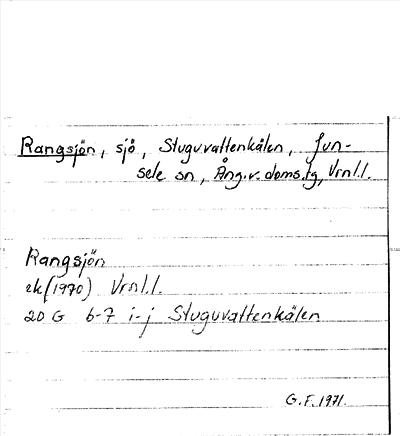 Rangsjön, sjö, Stuguvattenkälen, Jun-
sele sn, Ång.v. doms.lg, Vrnl.l.
Rangsjön
ek (1970) Vrnl.l.
20 G 6-7 i-j Stuguvattenkälen
G.F. 1971.